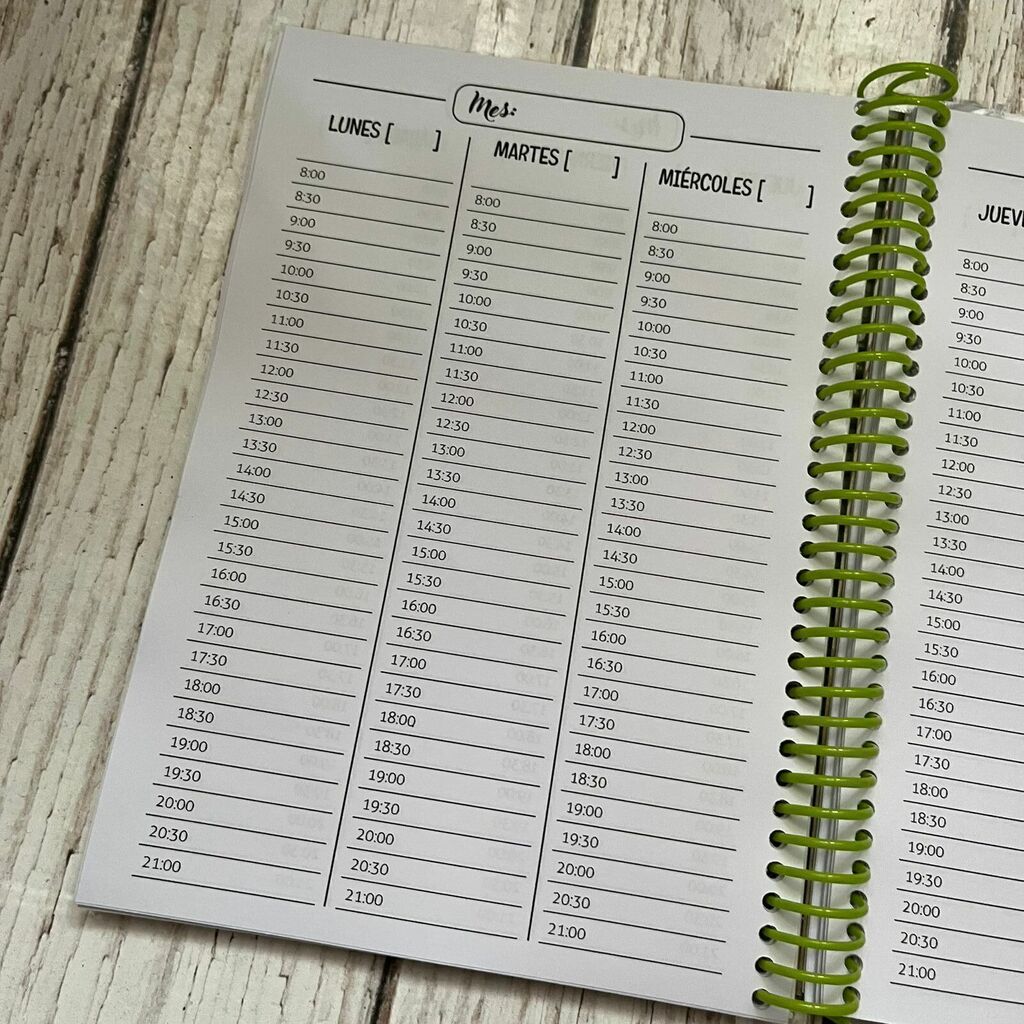 Mes:
LUNES [ ]
8:00
8:30
9:00
9:30
10:00
10:30
11:00
11:30
12:00
12:30
13:00
13:30
14:00
14:30
15:00
15:30
16:00
16:30
17:00
17:30
18:00
18:30
19:00
19:30
20:00
20:30
21:00
MARTES [ ]
8:00
8:30
9:00
9:30
10:00
10:30
11:00
11:30
12:00
12:30
13:00
13:30
14:00
14:30
15:00
15:30
16:00
16:30
17:00
17:30
18:00
18:30
19:00
19:30
20:00
20:30
21:00
MIÉRCOLES [ ]
8:00
8:30
9:00
9:30
10:00
10:30
11:00
11:30
12:00
12:30
13:00
13:30
14:00
14:30
15:00
15:30
16:00
16:30
17:00
17:30
18:00
18:30
19:00
19:30
20:00
20:30
21:00
JUEVE
8:00
8:30
9:00
9:30
10:00
10:30
11:00
11:30
12:00
12:30
13:00
13:30
14:00
14:30
15:00
15:30
16:00
16:30
17:00
17:30
18:00
18:30
19:00
19:30
20:00
20:30
21:00